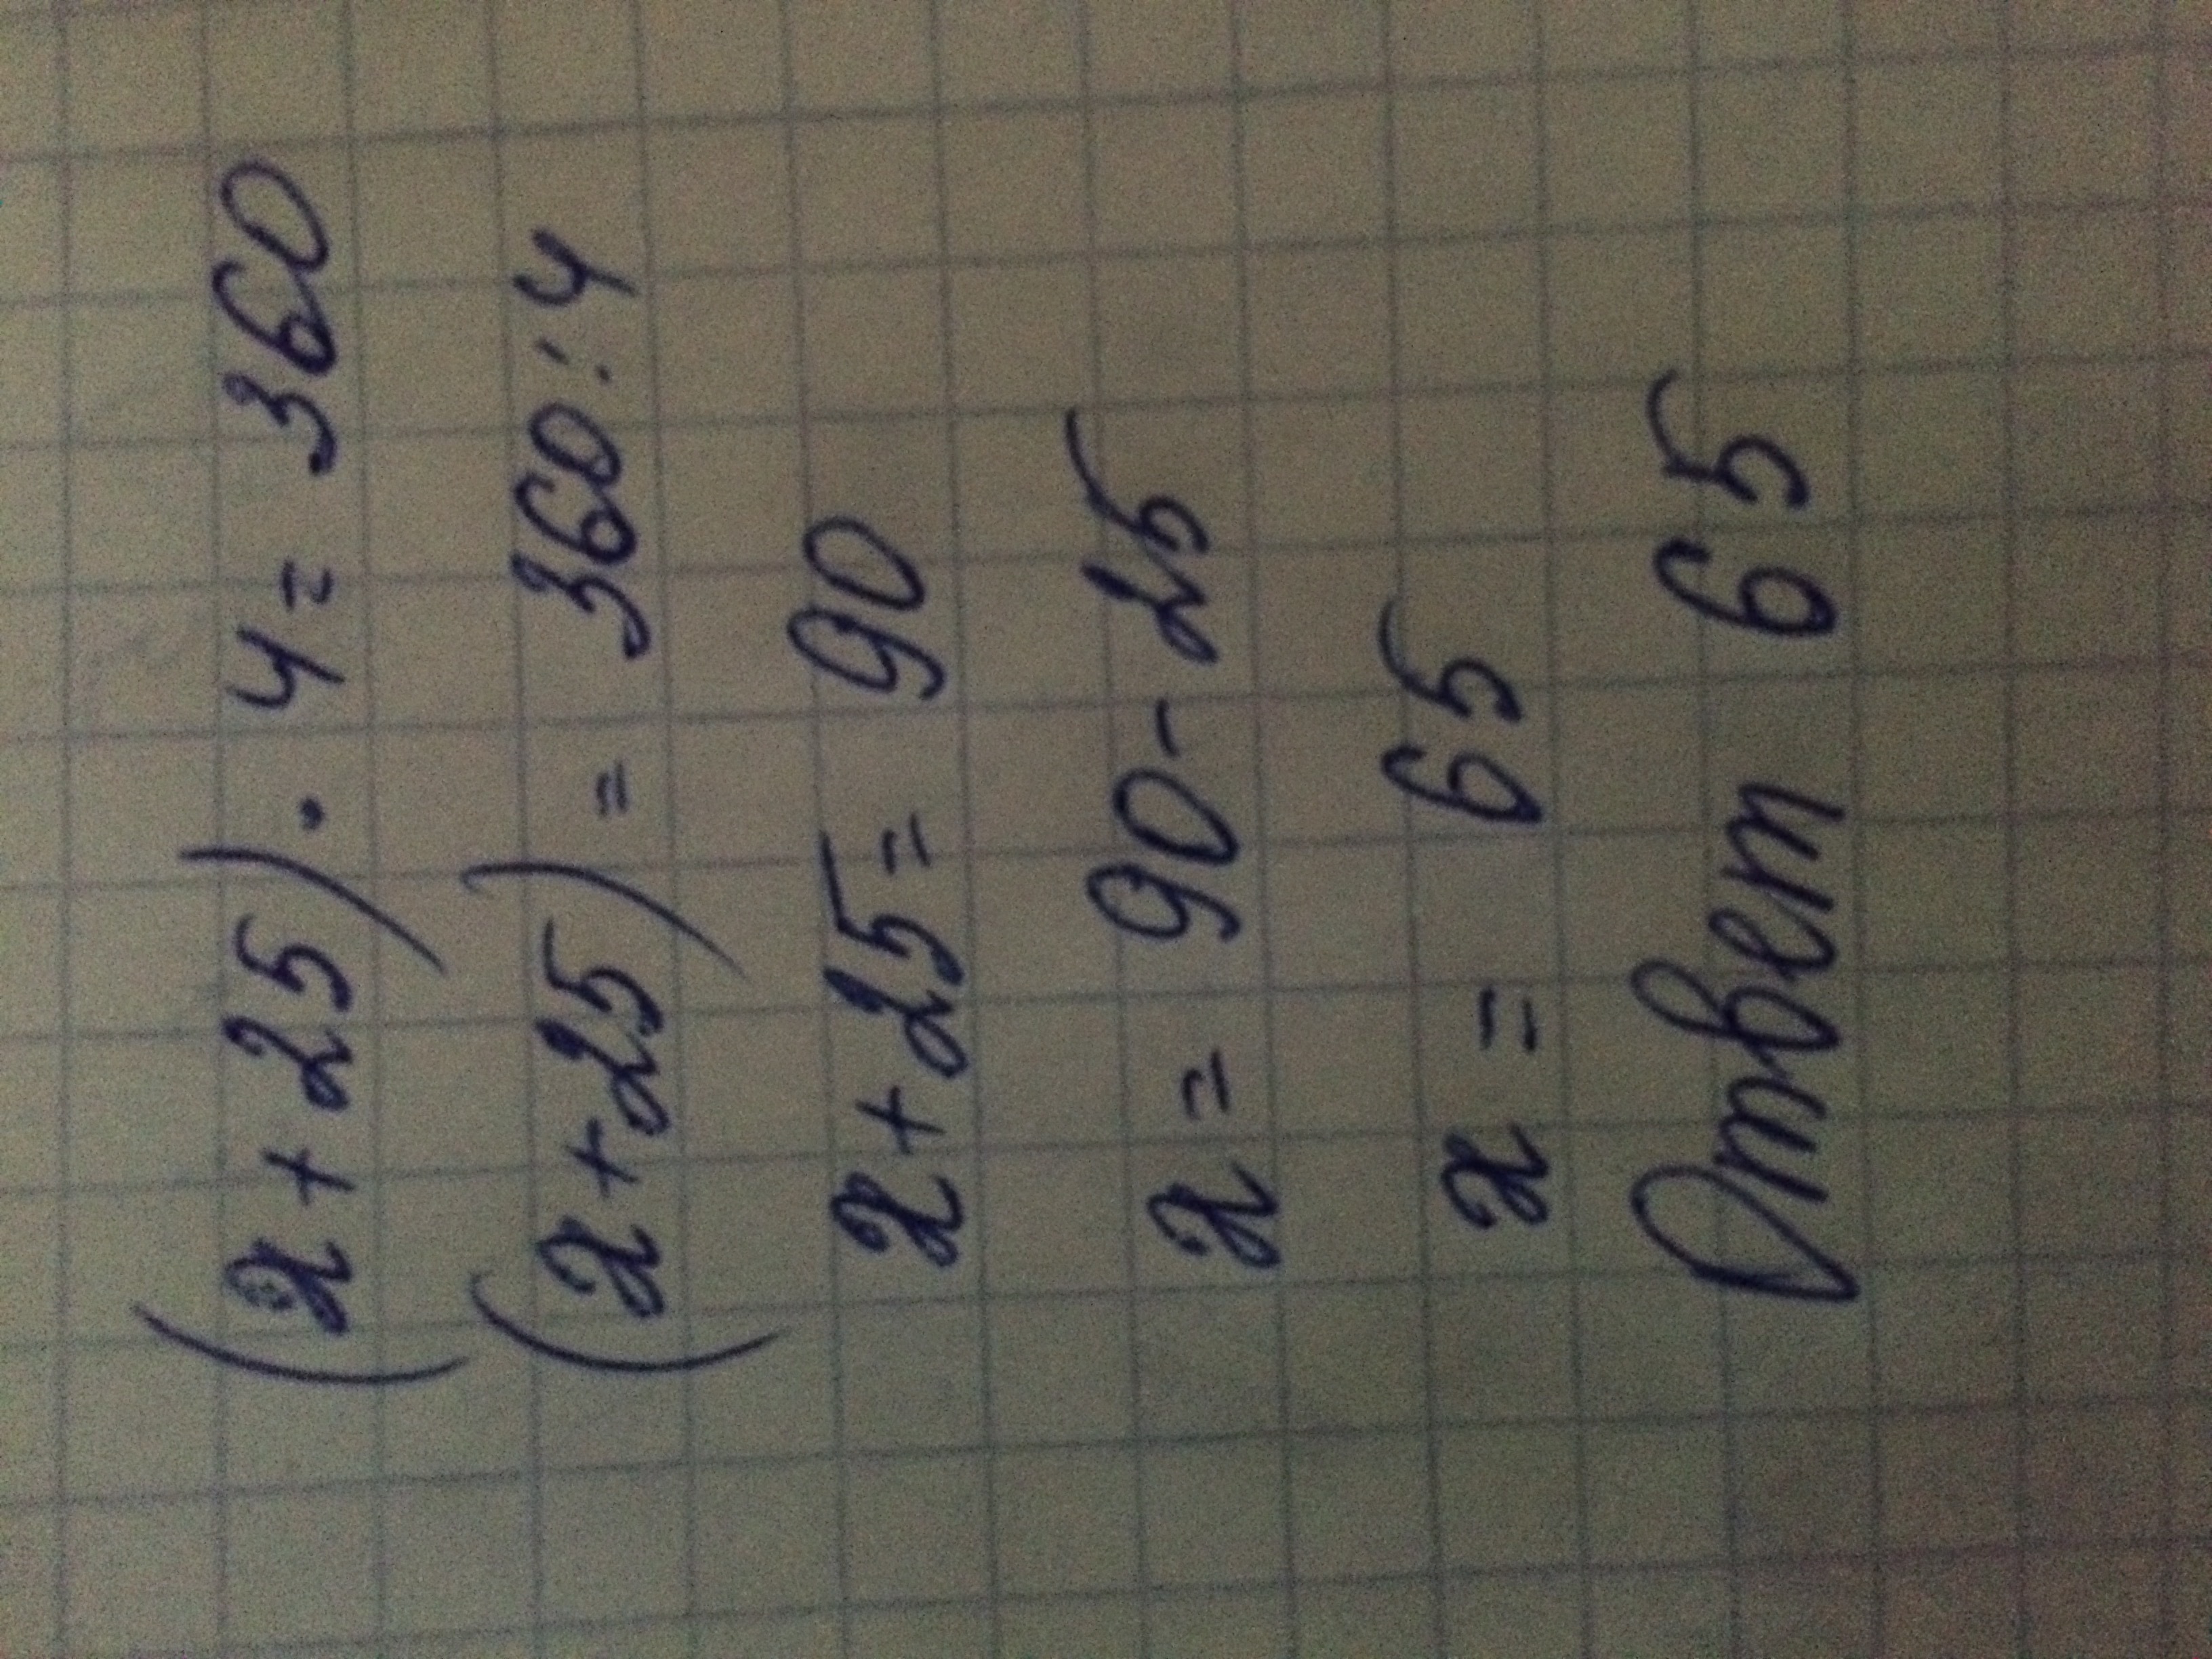 (x + 25) · 4 = 360
(x + 25) = 360 : 4
x + 25 = 90
x = 90 - 25
x = 65
Ответ 65